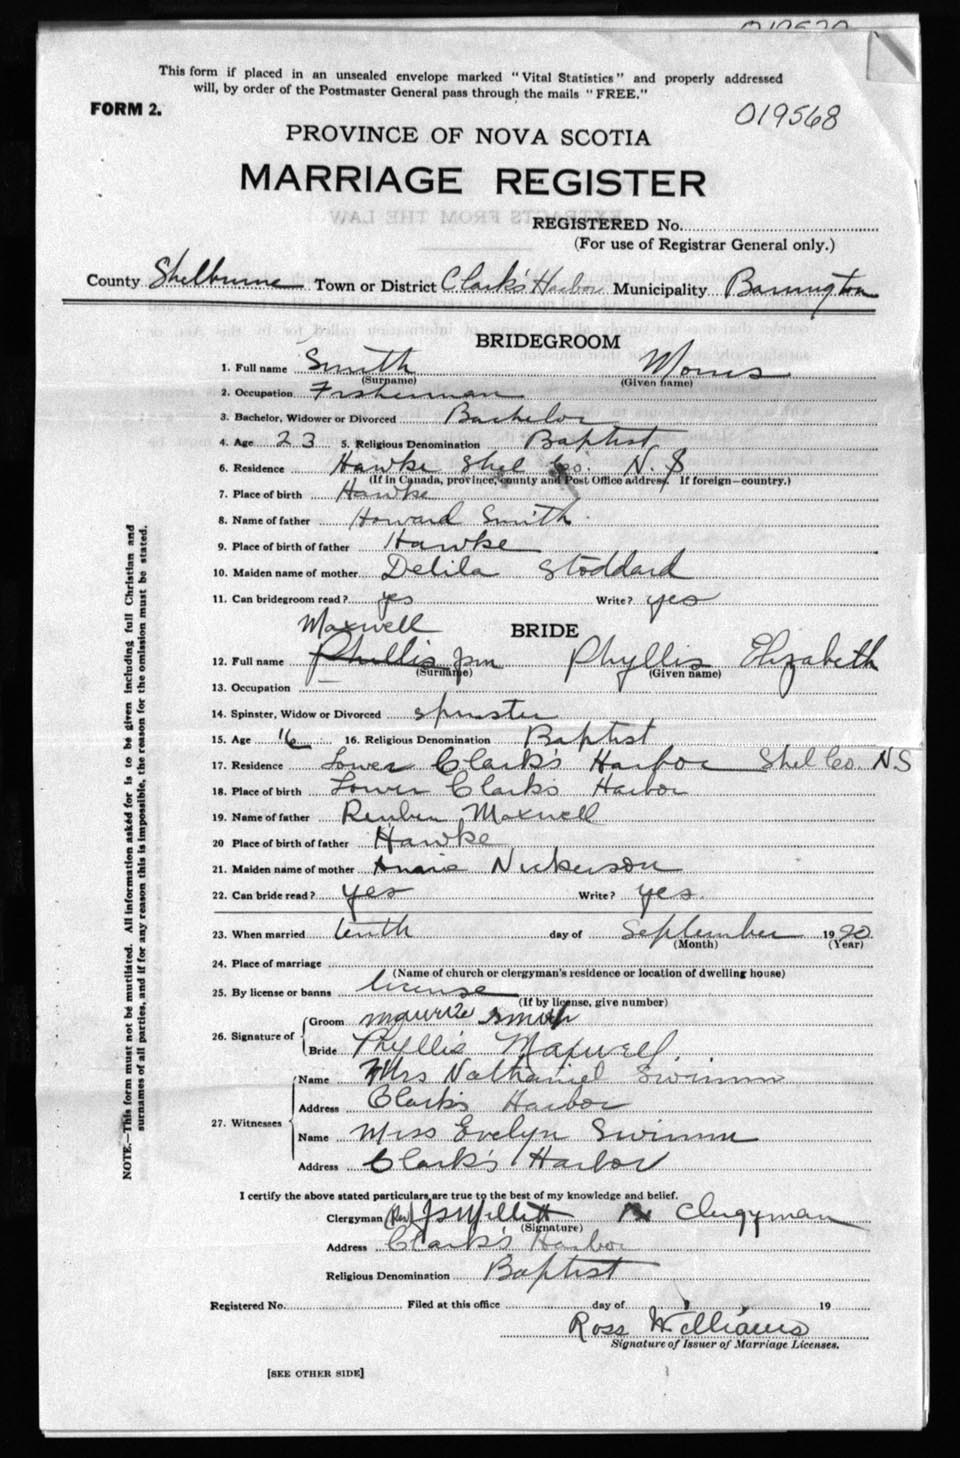 This form if placed in an unsealed envelope marked "Vital Statistics" and properly addressed
will, by order of the Postmaster General pass through the mails "FREE."
FORM 2.
019568
PROVINCE OF NOVA SCOTIA
MARRIAGE REGISTER
REGISTERED No.
(For use of Registrar General only.)
County Shelburne Town or District Clark's Harbor Municipality Barrington
BRIDEGROOM
1. Full name Smith Morris
(Surname) (Given name)
2. Occupation Fisherman
3. Bachelor, Widower or Divorced Bachelor
4. Age 23 5. Religious Denomination Baptist
6. Residence Hawke Shel Co. N.S
(If in Canada, province, county and Post Office address, If foreign-country.)
7. Place of birth Hawke
8. Name of father Howard Smith
9. Place of birth of father Hawke
10. Maiden name of mother Delila Stoddard
11. Can bridegroom read? yes Write? yes
BRIDE
Maxwell
12. Full name Phillis Jsm Phyllis Elizabeth
(Surname) (Given name)
13. Occupation
14. Spinster, Widow or Divorced spinster
15. Age 16 16. Religious Denomination Baptist
17. Residence Lower Clark's Harbor Shel Co. NS
18. Place of birth Lower Clark's Harbor
19. Name of father Reuben Maxwell
20 Place of birth of father Hawke
21. Maiden name of mother Annie Nickerson
22. Can bride read? yes Write? yes.
23. When married tenth day of September 1920
(Month) (Year)
24. Place of marriage
(Name of church or clergyman's residence or location of dwelling house)
25. By license or banns license
(If by license, give number)
26. Signature of Groom Smith
Bride Phyllis Maxwell.
27. Witnesses Name Mrs Nathaniel Swimm
Address Clark's Harbor
Name Miss Evelyn Swimm
Address Clark's Harbor
I certify the above stated particulars are true to the best of my knowledge and belief.
Clergyman (Rev) J S Millett Clergyman
(Signature)
Address Clark's Harbor
Religious Denomination Baptist
Registered No. Filed at this office day of 19
Ross Williams
Signature of Issuer of Marriage Licenses.
[SEE OTHER SIDE]
NOTE.—This form must not be mutilated. All information asked for is to be given including full Christian and
surnames of all parties, and if for any reason this is impossible, the reason for the omission must be stated.